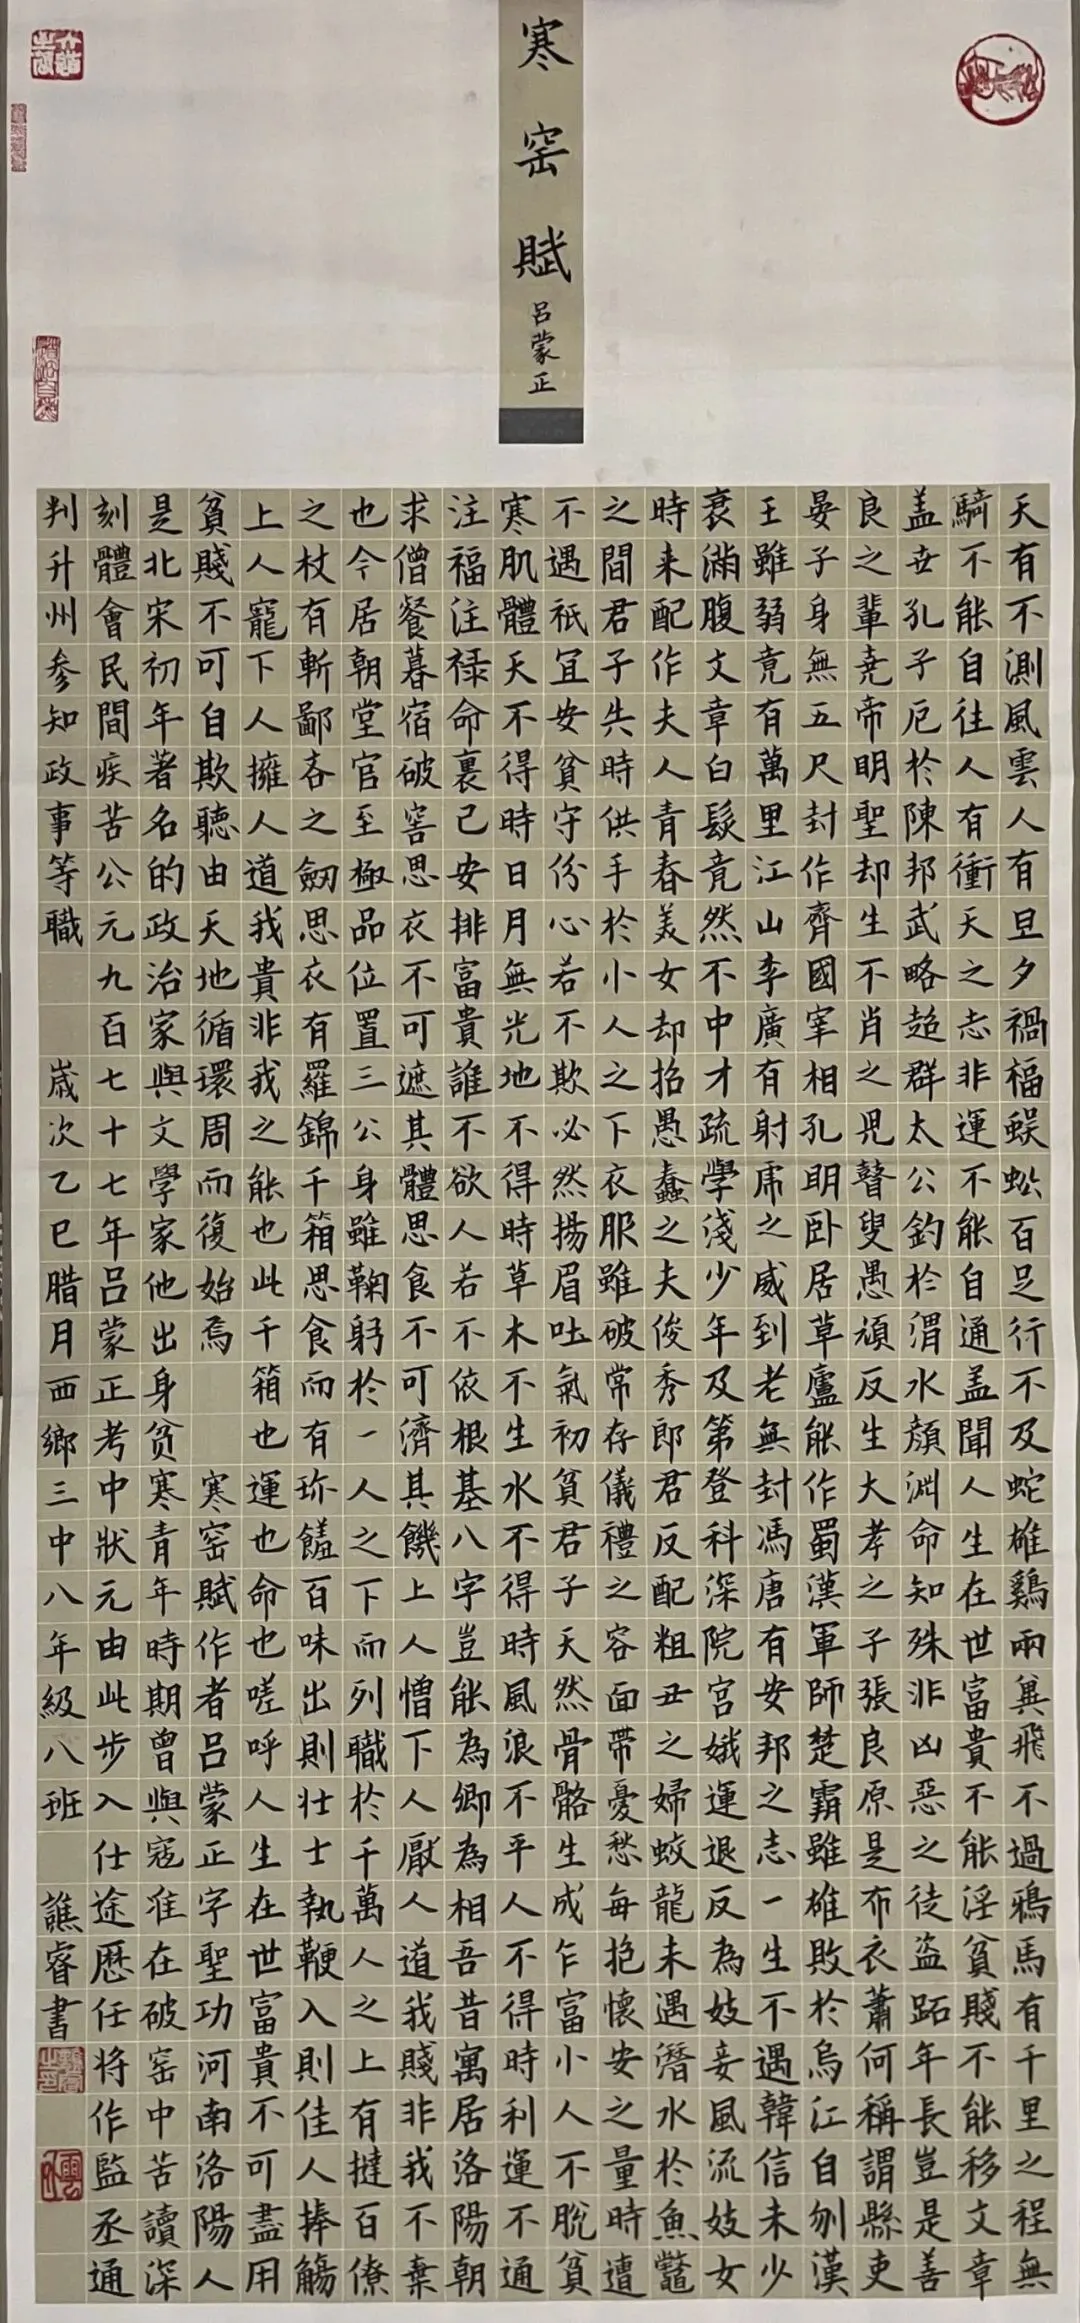 寒窑賦
吕蒙正
天有不測風雲人有旦夕禍福蜈蚣百足行不及蛇雄鷄兩翼飛不過鴉馬有千里之程無
騎不能自往人有衝天之志非運不能自通盖聞人生在世富貴不能淫貧賤不能移文章
盖世孔子厄於陳邦武略超群太公釣於渭水顏淵命知殊非凶惡之徒盜跖年長豈是善
良之輩尭帝明聖却生不肖之児瞽叟愚頑反生大孝之子張良原是布衣蕭何稱謂縣吏
晏子身無五尺封作齊國宰相孔明卧居草廬能作蜀漢軍師楚霸雖雄敗於烏江自刎漢
王雖弱竟有萬里江山李廣有射虎之威到老無封馮唐有安邦之志一生不遇韓信未少
衰滿腹文章白髮竟然不中才疏學淺少年及第登科深院宮娥運退反為妓妾風流妓女
時来配作夫人青春美女却招愚蠢之夫俊秀郎君反配粗丑之婦蛟龍未遇潛水於魚鼈
之間君子失時供手於小人之下衣服雖破常存儀禮之容面帶憂愁每抱懷安之量時遭
不遇祗宜安貧守份心若不欺必然揚眉吐氣初貧君子天然骨骼生成乍富小人不脫貧
寒肌體天不得時日月無光地不得時草木不生水不得時風浪不平人不得時利運不通
注福注祿命裏己安排富貴誰不欲人若不依根基八字豈能為卿為相吾昔寓居洛陽朝
求僧餐暮宿破窖思衣不可遮其體思食不可濟其饑上人憎下人厭人道我賤非我不棄
也今居朝堂官至極品位置三公身雖鞠躬於一人之下而列職於千萬人之上有撻百僚
之杖有斬鄙吝之劒思衣有羅錦千箱思食而有珎饈百味出則壯士執鞭入則佳人捧觴
上人寵下人擁人道我貴非我之能也此千箱也運也命也嗟呼人生在世富貴不可盡用
貧賤不可自欺聽由天地循環周而復始焉 寒窑賦作者吕蒙正字聖功河南洛陽人
是北宋初年著名的政治家與文學家他出身貧寒青年時期曾與寇准在破窑中苦讀深
刻體會民間疾苦公元九百七十七年吕蒙正考中狀元由此步入仕途歷任将作監丞通
判升州參知政事等職 歲次乙巳腊月西鄉三中八年級八班 譙睿書